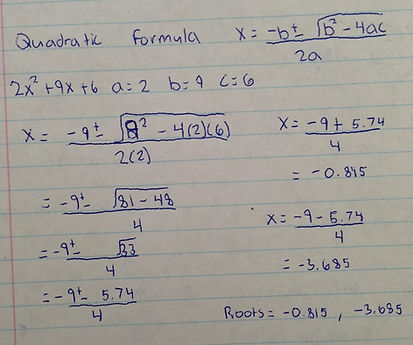 Quadratic formula x = -b ± √b² - 4ac / 2a
2x² + 9x + 6 a = 2 b = 9 c = 6
x = -9 ± √9² - 4(2)(6) / 2(2)
= -9 ± √81 - 48 / 4
= -9 ± √33 / 4
= -9 ± 5.74 / 4
x = -9 + 5.74 / 4
= -0.815
x = -9 - 5.74 / 4
= -3.685
Roots = -0.815 , -3.685